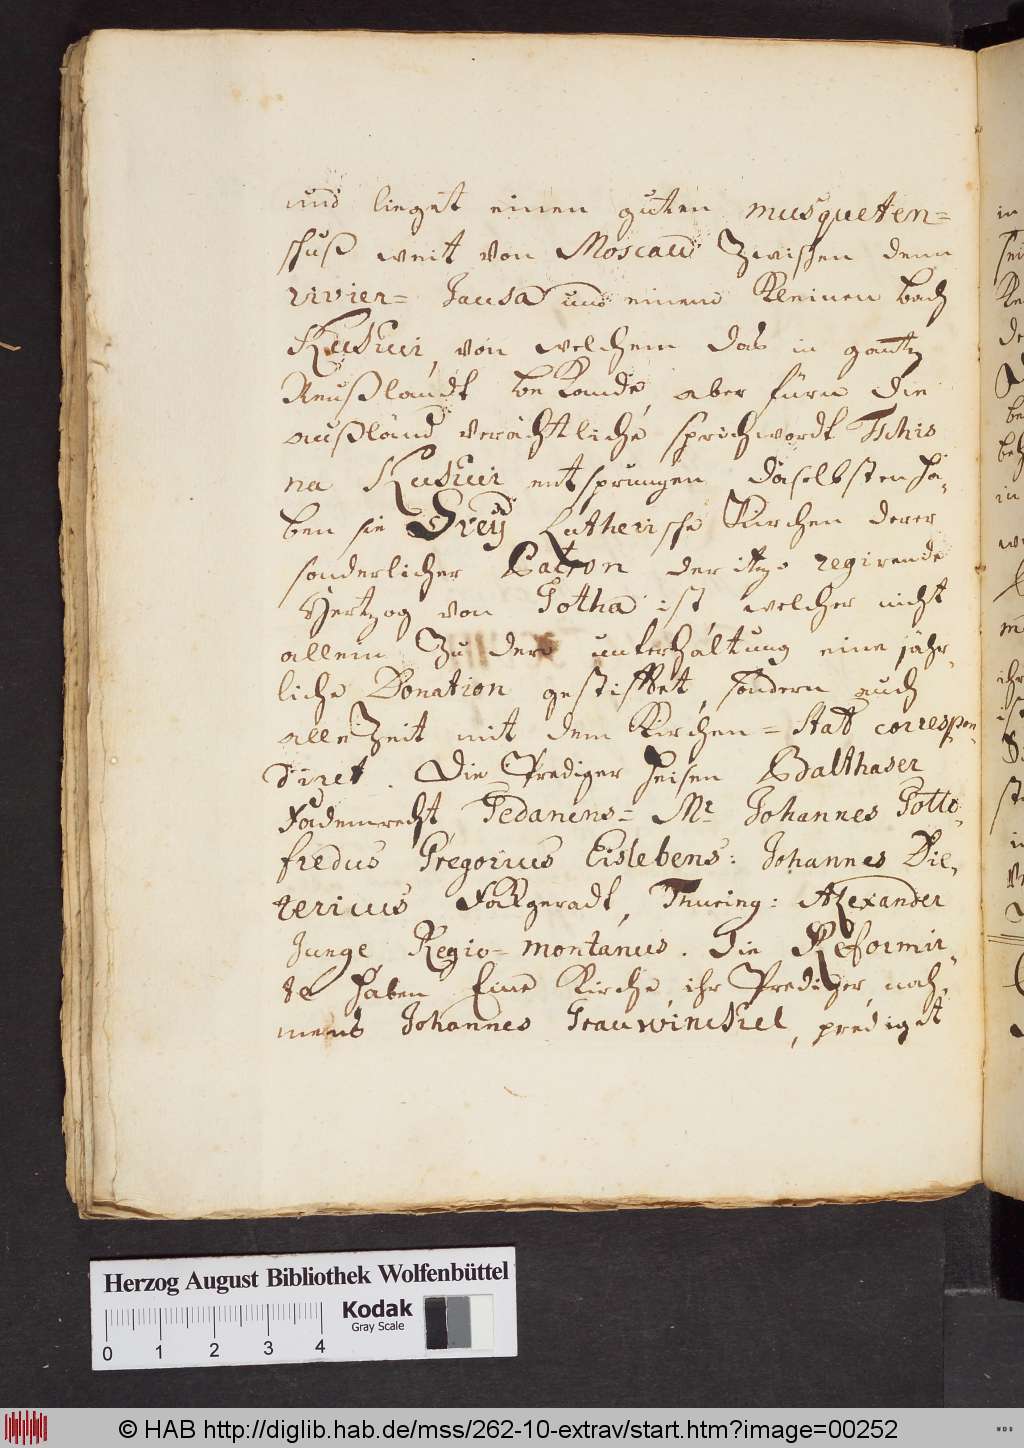 und lieget einen guten musqueten=
schuß weit von Moscau zwischen denn
rivier= Jausa und einem Kleinen bach
Kukuii, von welchem das in gantz
Reußlandt bekande, aber fürn die
außländ verächtliche sprichwordt Tschis
na Kukuii entsprungen daselbsten ha-
ben sie Drey Lutherische Kirchen derer
sonderlicher Patron der itzo regirende
Hertzog von Gotha ist welcher nicht
allein zu dero unterhaltung eine jähr-
liche Donation gestifftet, sondern auch
alle Zeit mit dem Kirchen = Stat correspon-
diret. Die Prediger heisen Balthaser
Fademrecht Gedanens= Mr Johannes Gotto-
fredus Gregorius Eislebens: Johannes Die-
tericus Fockgeradt, Thuring: Alexander
Junge Regio=montanus. Die Reformir-
te haben Eine Kirche, ihr Prediger, nah-
mens Johannes Grauwinckel, prediget
Herzog August Bibliothek Wolfenbüttel
Kodak
Gray Scale
0 1 2 3 4
© HAB http://diglib.hab.de/mss/262-10-extrav/start.htm?image=00252